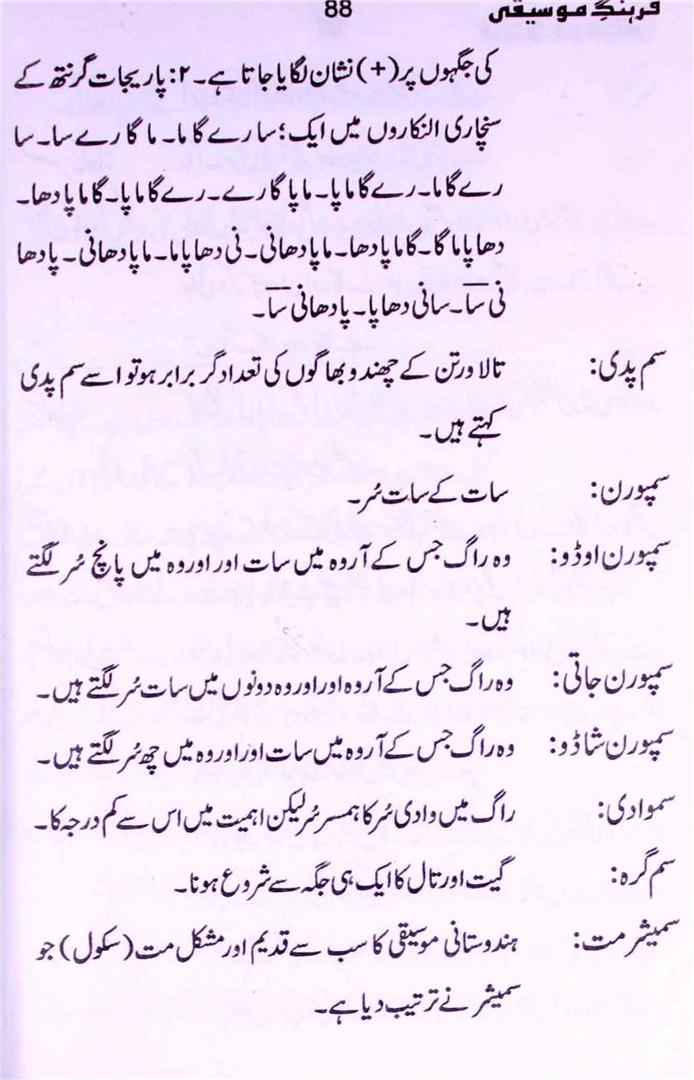 فرہنگِ موسیقی 88
کی جگہوں پر (+) نشان لگایا جاتا ہے۔ ۲: پاریجات گرنتھ کے
سنچاری النکاروں میں ایک؛ سا رے گا ما۔ ما گا رے سا۔ سا
رے گا ما۔ رے گا ما پا۔ ما پا گا رے۔ رے گا ما پا۔ گا ما پا دھا۔
دھا پا ما گا۔ گا ما پا دھا۔ ما پا دھا نی۔ نی دھا پا ما۔ ما پا دھا نی۔ پا دھا
نی سا۔ سا نی دھا پا۔ پا دھا نی سا۔
سم پدی: تالا ورتن کے چھند و بھاگوں کی تعداد گر برابر ہو تو اسے سم پدی
کہتے ہیں۔
سمپورن: سات کے سات سُر۔
سمپورن اوڈو: وہ راگ جس کے آروہ میں سات اور اوروہ میں پانچ سُر لگتے
ہیں۔
سمپورن جاتی: وہ راگ جس کے آروہ اور اوروہ دونوں میں سات سُر لگتے ہیں۔
سمپورن شاڈو: وہ راگ جس کے آروہ میں سات اور اوروہ میں چھ سُر لگتے ہیں۔
سموادی: راگ میں وادی سُر کا ہمسر سُر لیکن اہمیت میں اس سے کم درجہ کا۔
سم گرہ: گیت اور تال کا ایک ہی جگہ سے شروع ہونا۔
سمیشر مت: ہندوستانی موسیقی کا سب سے قدیم اور مشکل مت (سکول) جو
سمیشر نے ترتیب دیا ہے۔